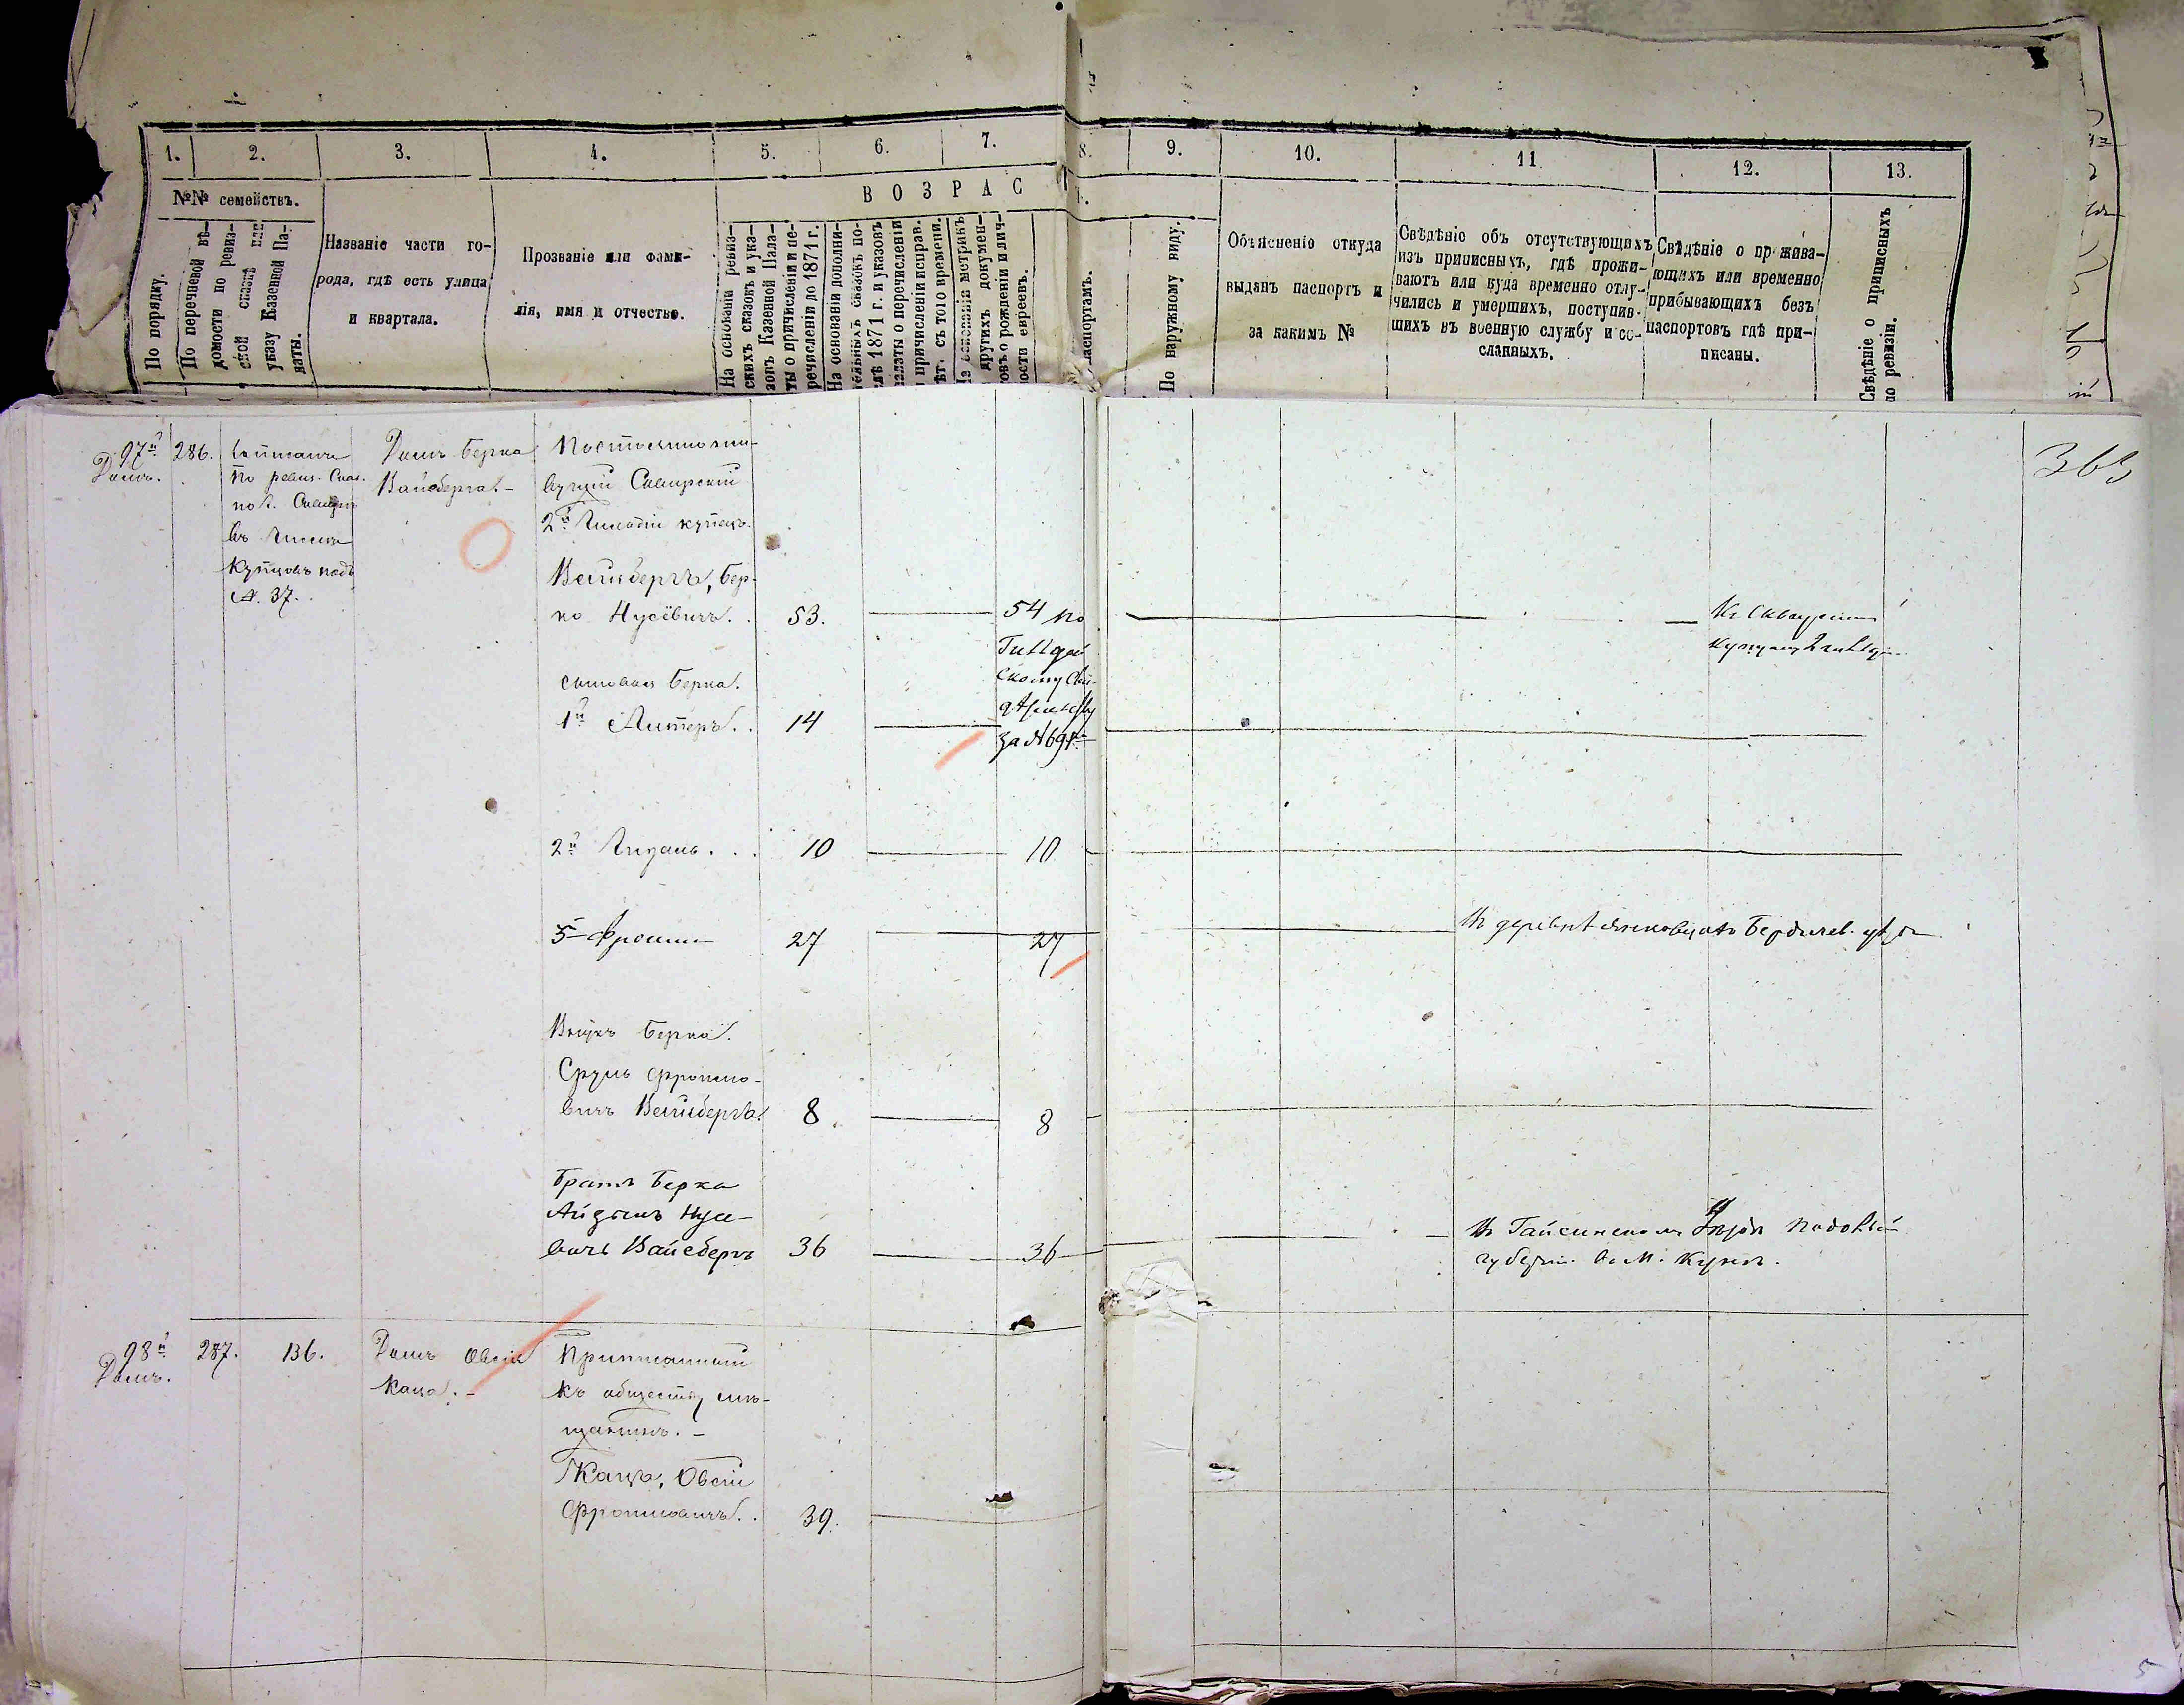 1.
2.
3.
4.
5.
6.
7.
8.
9.
10.
11
12.
13.
№№ семействъ.
ВОЗРАС
По порядку.
По перечневой вѣ-
домости по ревиз-
ской сказкѣ или
указу Казенной Па-
латы.
Названіе части го-
рода, гдѣ есть улица
и квартала.
Прозваніе или фами-
лія, имя и отчество.
На основаніи ревиз-
скихъ сказокъ и ука-
зовъ Казенной Пала-
ты о причисленіи и пе-
речисленіи до 1871 г.
На основаніи дополни-
тельныхъ сказокъ по-
слѣ 1871 г. и указовъ
палаты о перечисленіи
и причисленіи исправ.
лѣт. съ того времени.
На основаніи метрикъ
другихъ докумен-
товъ о рожденіи и лич-
ности евреевъ.
паспортамъ.
По наружному виду.
Объясненіе откуда
выданъ паспортъ и
за какимъ №
Свѣдѣніе объ отсутствующихъ
изъ приписныхъ, гдѣ прожи-
ваютъ или куда временно отлу-
чились и умершихъ, поступив-
шихъ въ военную службу и со-
сланныхъ.
Свѣдѣніе о прожива-
ющихъ или временно
прибывающихъ безъ
паспортовъ гдѣ при-
писаны.
Свѣдѣніе о приписныхъ
по ревизіи.
363
97й
Домъ.
286.
по ревиз. Сказ.
по г.
въ
Купцовъ подъ
№. 37.
Домъ Берка
Вайсберга. -
Постоянно жи-
вущій Сквирскій
2й Гильдіи купецъ
Вейсбергъ, Бер-
ко Нусевичъ. .
53.
54 по
Гильдей
скому Сви-
дѣтельству
за №
Къ Сквирскимъ
купцамъ 2 гильдіи
сыновья Берка.
1й Литеръ. .
14
2й . . .
10
10
3
27
27
Въ деревнѣ Бердичев. уѣзда
Внукъ Берка.
Сруль Фроимо-
вичъ Вейсбергъ
8
8
Братъ Берка
Айзыкъ Нусе-
вичъ Вайсбергъ
36
36
Въ Гайсинскомъ уѣздѣ Подоль.
губерніи въ М. Кунѣ.
98й
Домъ.
287.
136.
Домъ Овсія
Каца. -
Приписанный
къ обществу мѣ-
щанинъ. -
Кацъ, Овсій
Фроимовичъ. .
39.
5